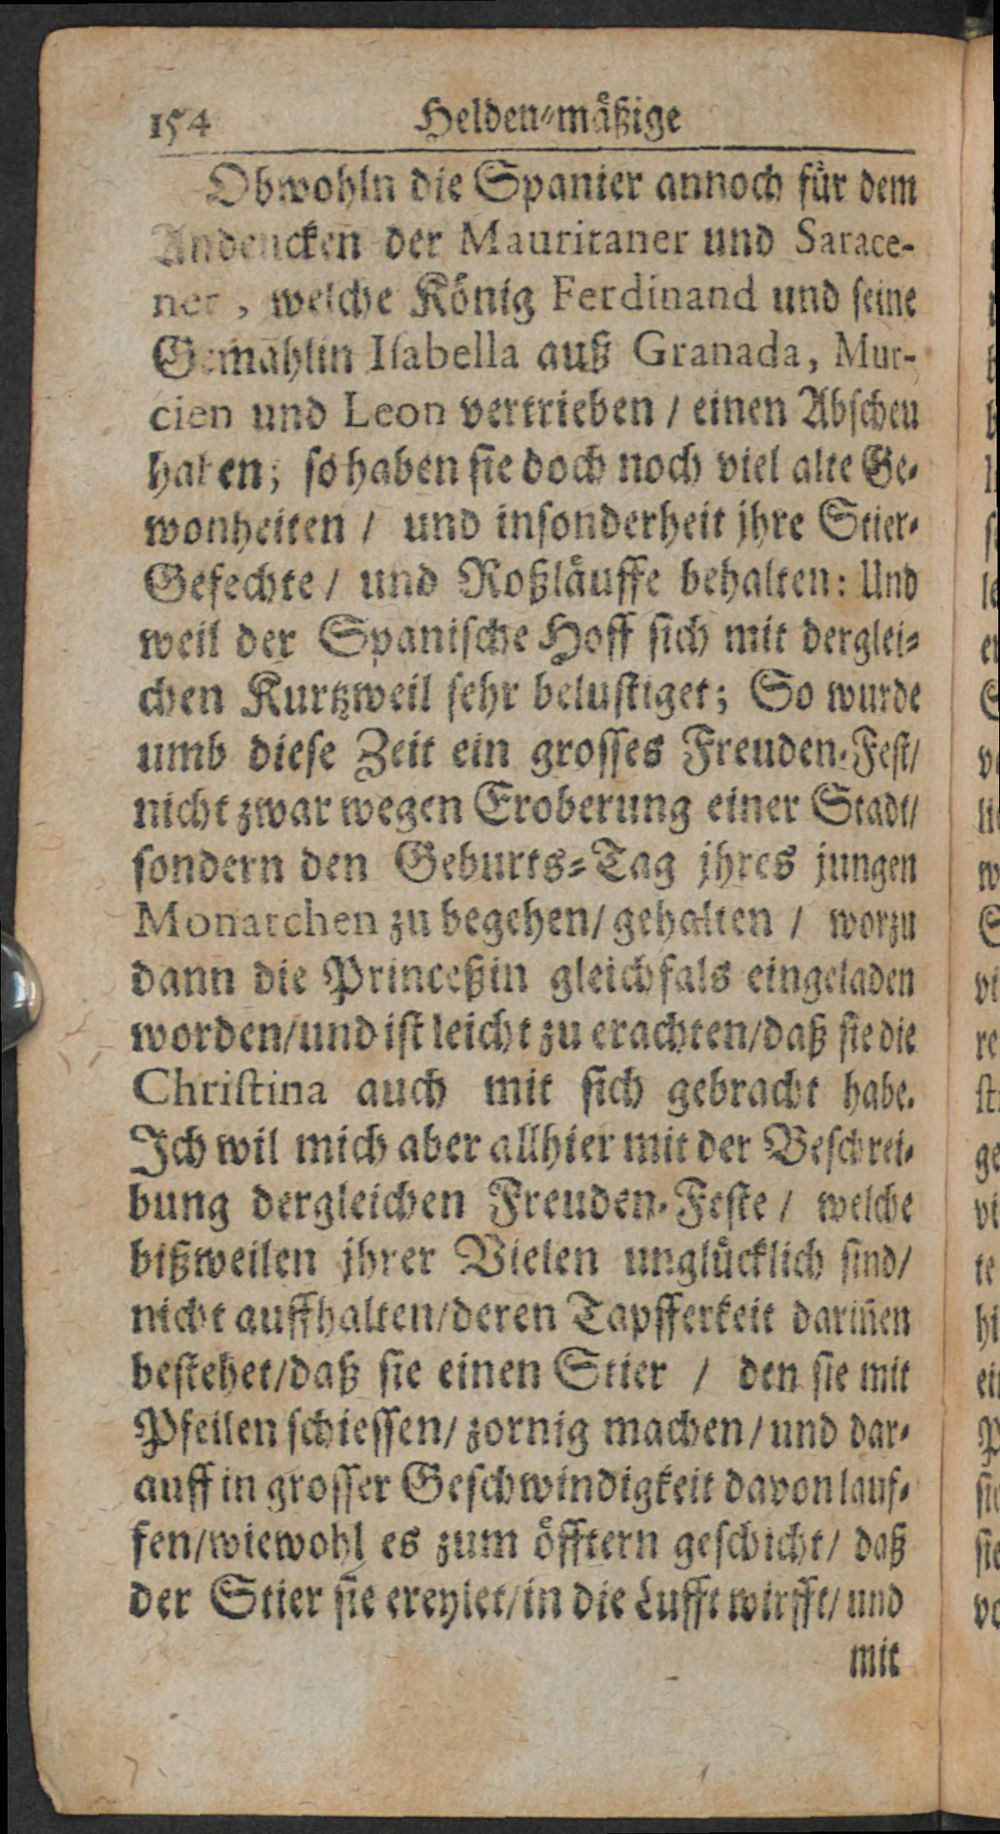 154 Helden-mäßige
Obwohln die Spanier annoch für dem
Andencken der Mauritaner und Sarace-
ner, welche König Ferdinand und seine
Gemahlin Isabella auß Granada, Mur-
cien und Leon vertrieben / einen Abscheu
haben; so haben sie doch noch viel alte Ge-
wonheiten / und insonderheit jhre Stier-
Gefechte / und Roßläuffe behalten: Und
weil der Spanische Hoff sich mit derglei-
chen Kurtzweil sehr belustiget; So wurde
umb diese Zeit ein grosses Freuden-Fest/
nicht zwar wegen Eroberung einer Stadt/
sondern den Geburts-Tag jhres jungen
Monarchen zu begehen/ gehalten / worzu
dann die Princeßin gleichfals eingeladen
worden/und ist leicht zu erachten/daß sie die
Christina auch mit sich gebracht habe.
Ich wil mich aber allhier mit der Beschrei-
bung dergleichen Freuden-Feste / welche
bißweilen jhrer Vielen unglücklich sind/
nicht auffhalten/deren Tapfferkeit dariñen
bestehet/daß sie einen Stier / den sie mit
Pfeilen schiessen/ zornig machen/ und dar-
auff in grosser Geschwindigkeit davon lauf-
fen/wiewohl es zum öfftern geschicht/ daß
der Stier sie ereylet/in die Lufft wirfft/ und
mit